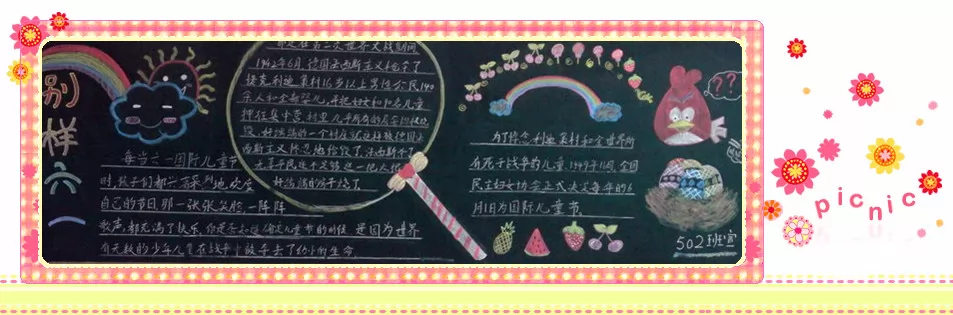 别
样
六
一
每当六一国际儿童节
时,孩子们都兴高采烈地欢度
自己的节日那一张张笑脸一阵阵
歌声,都充满了快乐,
有无数的少年儿童在战争中被夺去了幼小的生命
都是在第二次世界大战期间,
1942年6月,德国法西斯主义枪杀了
捷克利迪策村16岁以上男性公民140
余人和全部婴儿,并把妇女和90名儿童
押往集中营村里几乎所有的房舍均被烧
毁,好端端的一个村庄就这样被德国法
西斯主义
好端端的
为了悼念利迪策村和全世界所
有死于战争的儿童,1949年11月,全国
民主妇女协会正式决定每年的6
月1日为国际儿童节
??
502班宣
picnic